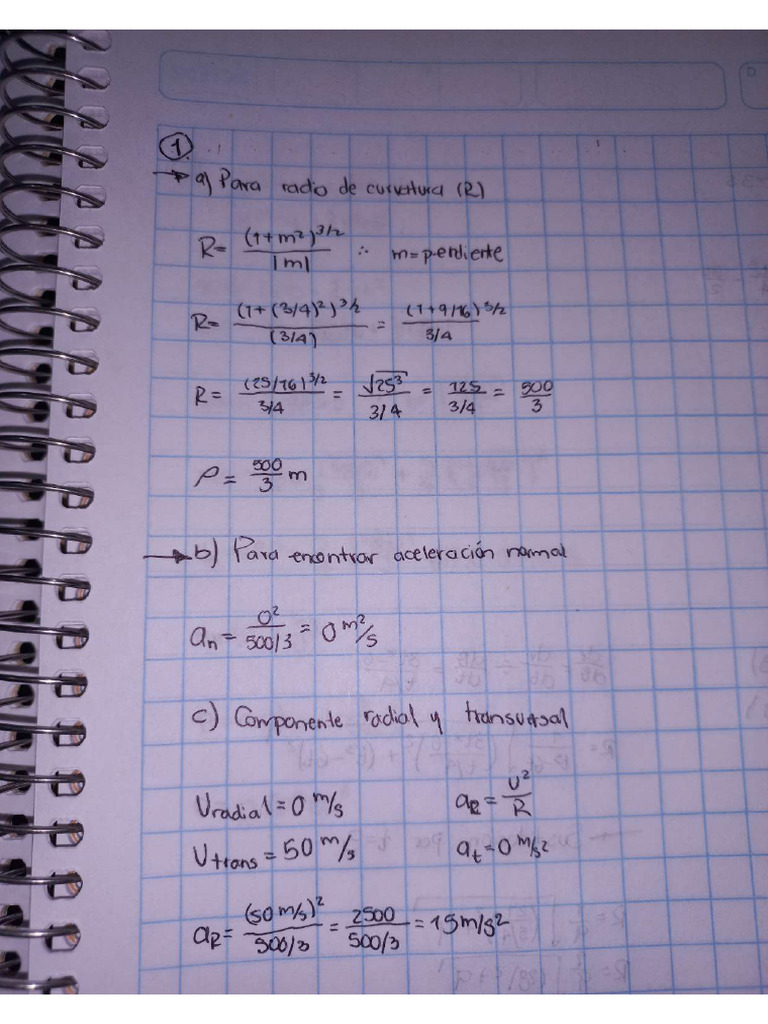 1
→ a) Para radio de curvatura (R)
R= (1+m²)^3/2 / |m| ∴ m=pendiente
R= (1+(3/4)²)^3/2 / (3/4) = (1+9/16)^3/2 / 3/4
R= (25/16)^3/2 / 3/4 = √25³ / 3/4 = 125 / 3/4 = 500/3
ρ= 500/3 m
→ b) Para encontrar aceleración normal
an= 0² / 500/3 = 0 m²/s
c) Componente radial y transversal
Uradial=0 m/s aR= U²/R
Utrans=50 m/s at=0 m/s²
aR= (50m/s)² / 500/3 = 2500 / 500/3 = 15m/s²